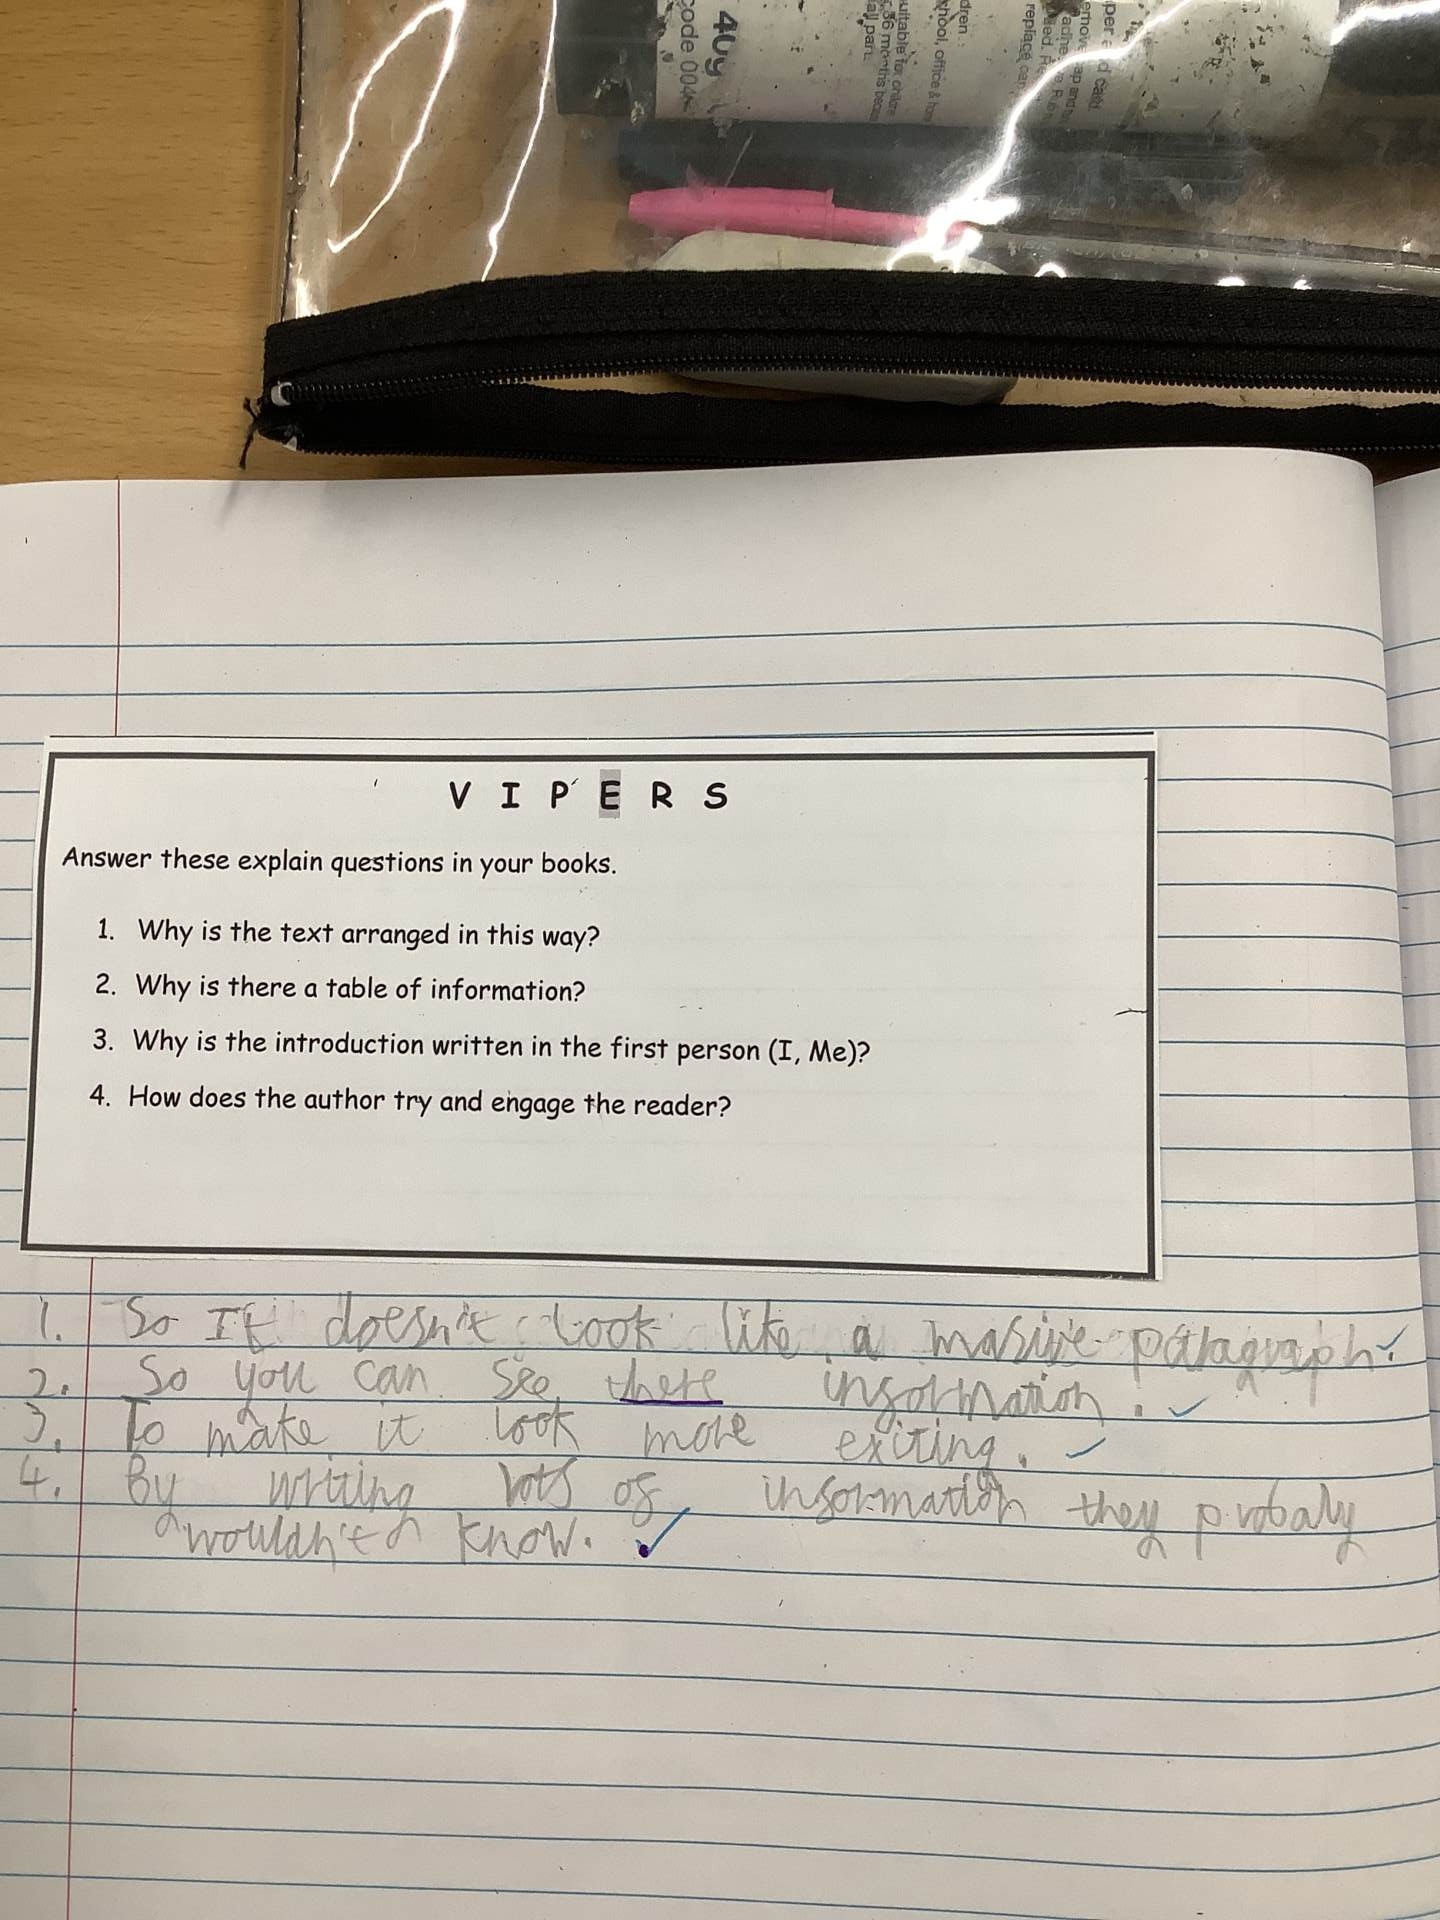 40g
code 004
dren
school, office &
suitable for
36 months
replace
V I P E R S
Answer these explain questions in your books.
1. Why is the text arranged in this way?
2. Why is there a table of information?
3. Why is the introduction written in the first person (I, Me)?
4. How does the author try and engage the reader?
1. So It doesn't look like a masive paragraph.
2. So you can see there information.
3. To make it look more exiting.
4. By writing lots of information they probaly
wouldn't know.